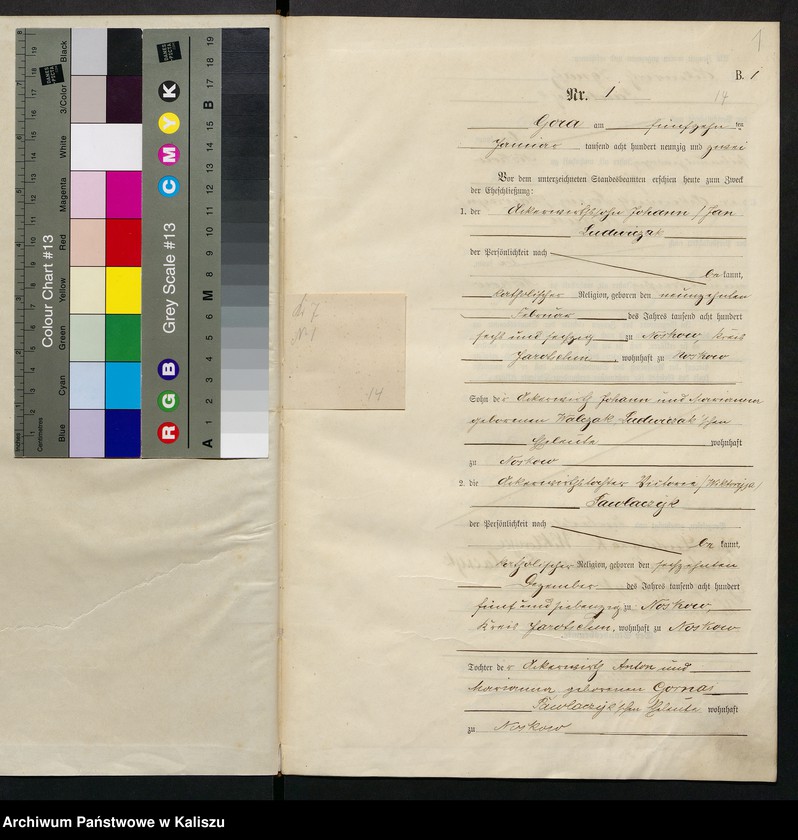 1
B. 1
Nr. 1
14
Gora am fünfzehn ten
Januar tausend acht hundert neunzig und zwei
Vor dem unterzeichneten Standesbeamten erschien heute zum Zweck
der Eheschließung:
1. der Ackerwirthssohn Johann /Jan
Ludwiczak
der Persönlichkeit nach
be kannt,
katholischer Religion, geboren den neunzehnten
Februar des Jahres tausend acht hundert
sechs und sechzig zu Noskow, Kreis
Jarotschin, wohnhaft zu Noskow
Sohn der Ackerwirth Johann und Marianna
geborenen Walczak Ludwiczak'schen
Eheleute wohnhaft
zu Noskow
2. die Ackerwirthstochter Victoria /Wiktoryja/
Pawlaczyk
der Persönlichkeit nach
be kannt,
katholischer Religion, geboren den sechzehnten
Dezember des Jahres tausend acht hundert
fünf und siebenzig zu Noskow,
Kreis Jarotschin, wohnhaft zu Noskow
Tochter der Ackerwirth Anton und
Marianna geborenen Gornas
Pawlaczyk'schen Eheleute wohnhaft
zu Noskow
N 1
14
Colour Chart #13
Blue Cyan Green Yellow Red Magenta White 3/Color Black
Inches
Centimetres
Grey Scale #13
R G B C M Y K
A 1 2 3 4 5 6 M 8 9 10 11 12 13 14 15 B 17 18 19
Archiwum Państwowe w Kaliszu